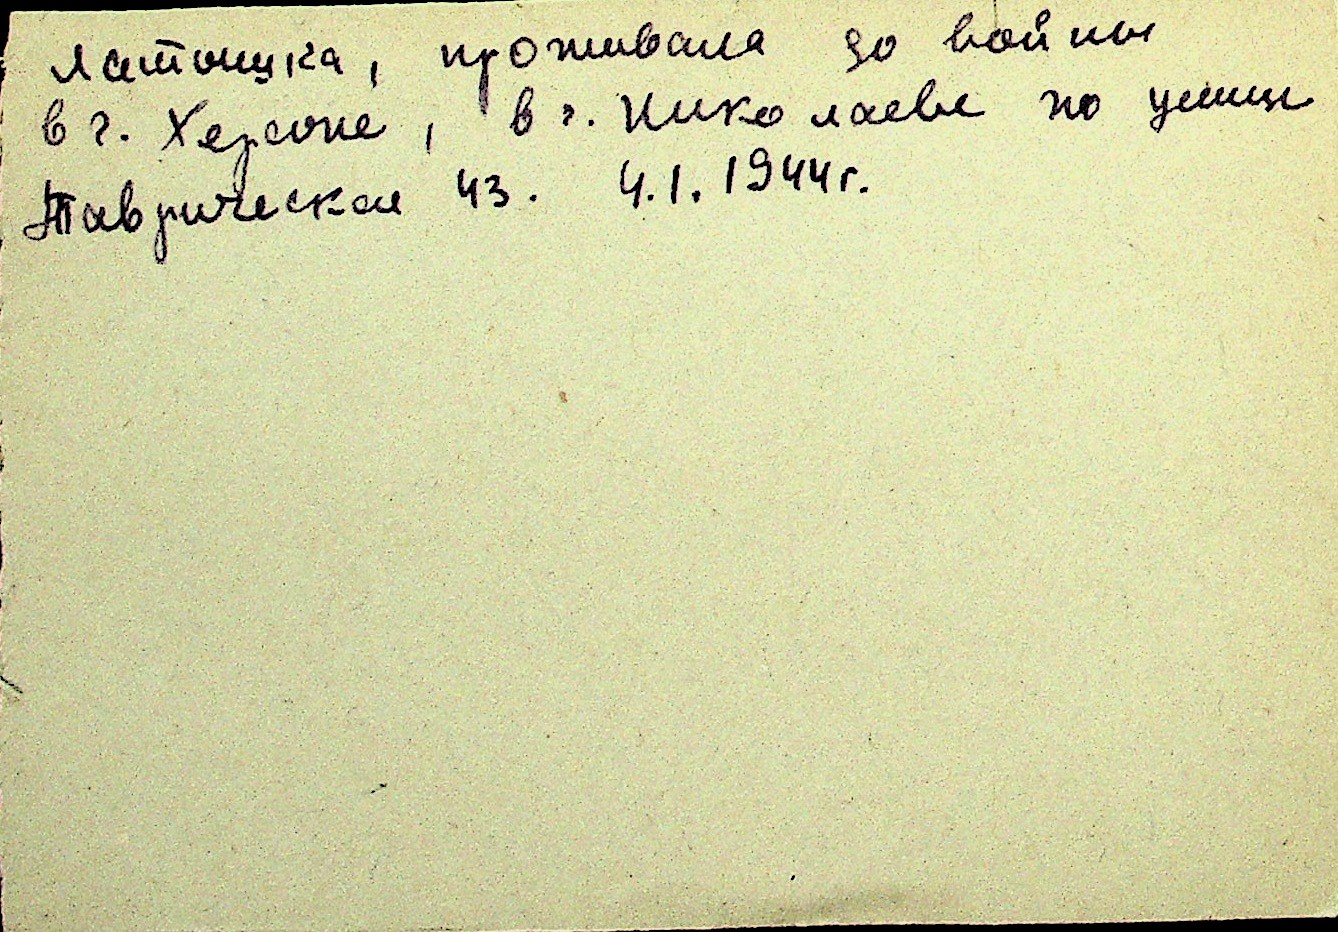 Латышка, проживала до войны
в г. Херсоне, в г. Николаеве по улице
Таврическая 43. 4.1.1944г.